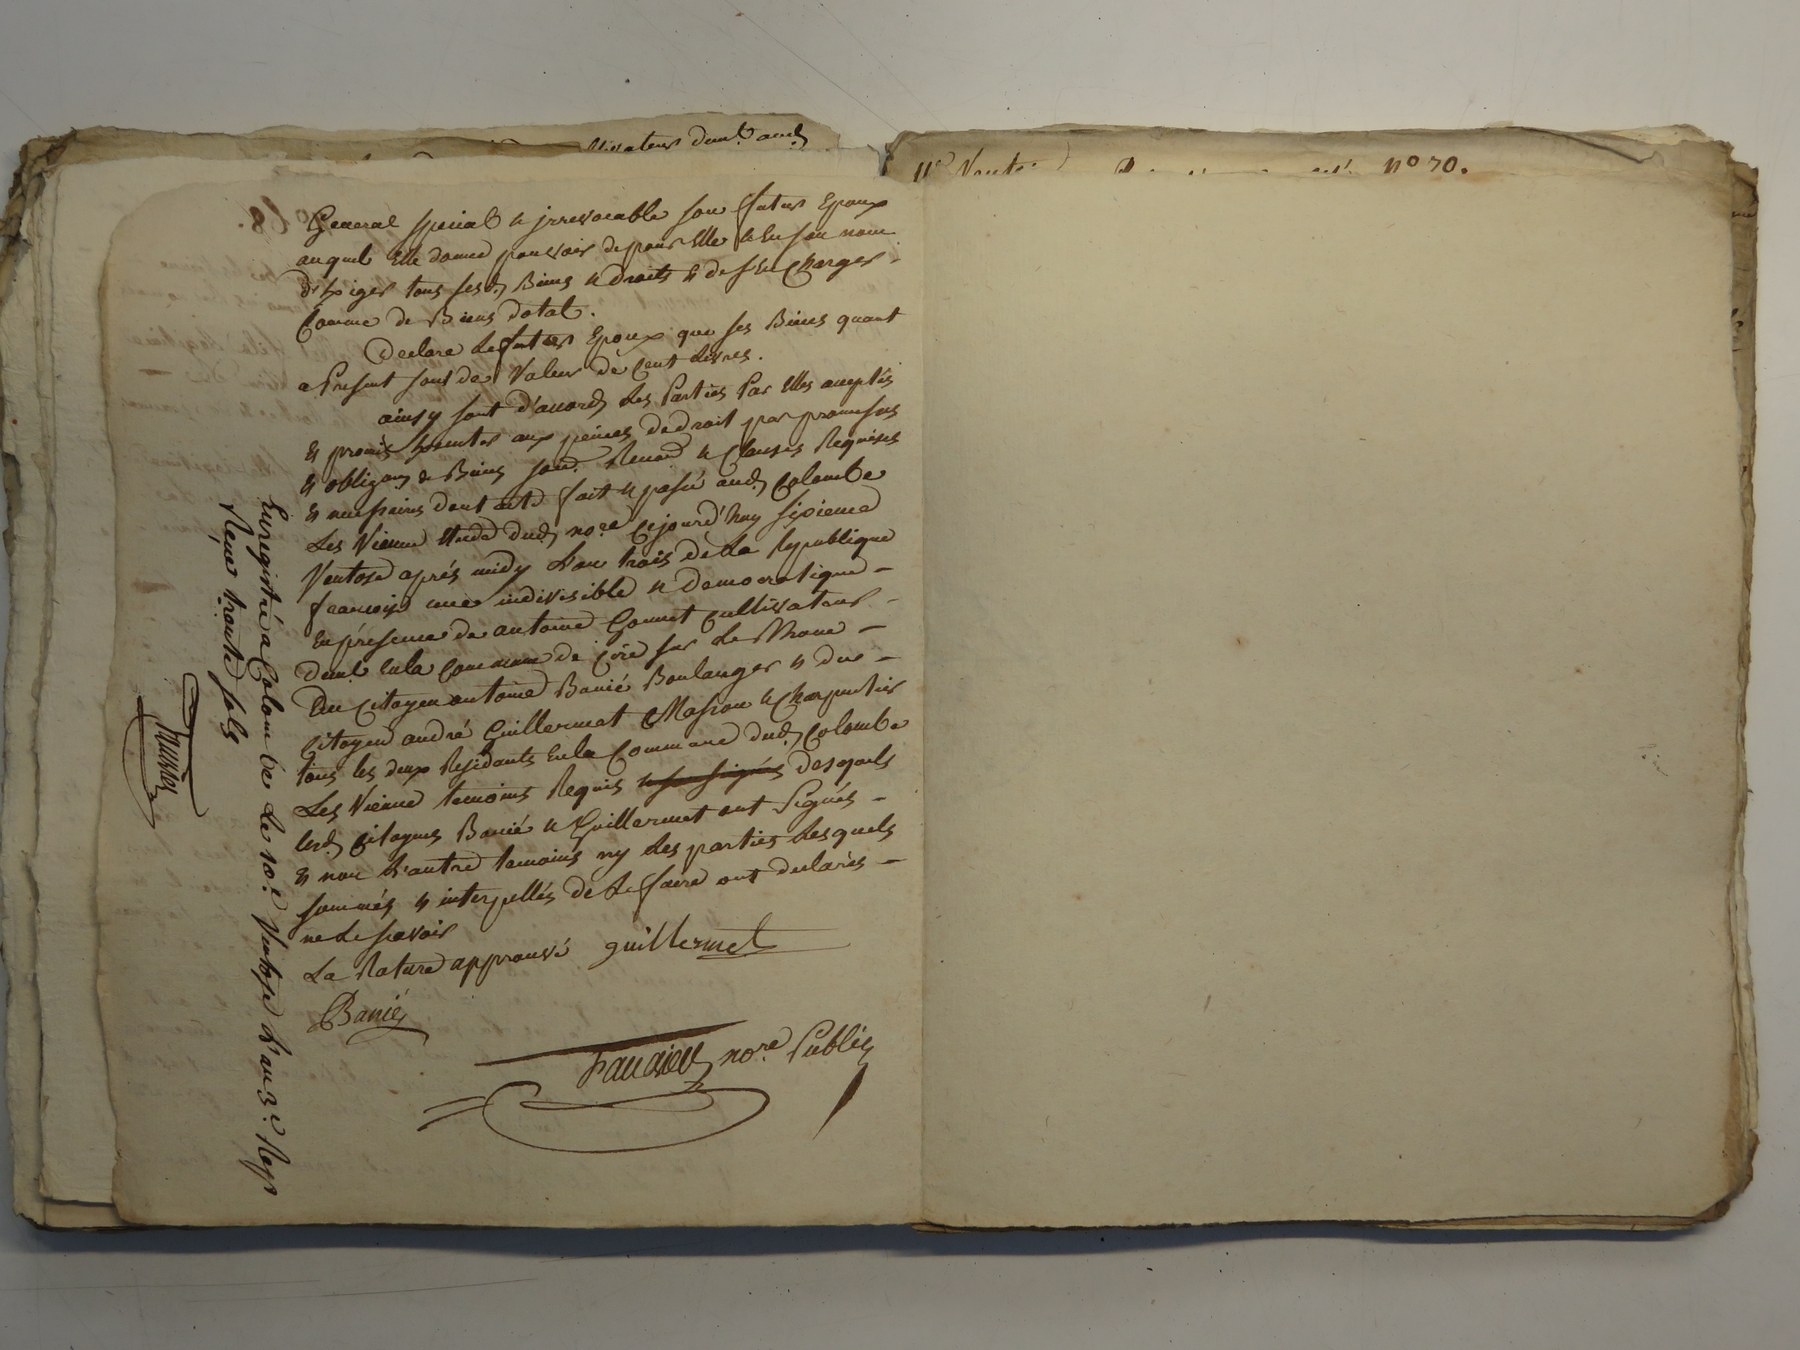 demt. aud.
11e Vente N° 70.
General special & jrrevocable son futur Epoux
auquel Elle donne pouvoir de pour Elle & En son nom
d'Exiger tous sesd. Biens & droits & de s'En Charger
Comme de Biens dotal.
Declare le futur Epoux que ses Biens quant
a Present sont de Valeur de Cent Livres.
ainsy sont d'accord les Parties Par Elles acceptés
& promis aux peines de droit par promesses
& obligaons de Biens Renon & Clauses Requises
& necessaires dont acte fait & passé aud. Colombe
Les Vienne Etude dud. nore Cejourd'huy sixieme
Ventose aprés midy L'an trois de La Republique
francoise une indivisible & democratique
En présence de antoine Gonnet Cultivateur
demt. En la Commune de sur Le Rhone
Du Citoyen antoine Banié Boulanger & du
Citoyen andré Guillermet Masson & Charpentier
tous les deux Residants En la Commune dud. Colombe
Les Vienne temoins Requis & soussignés desquels
lesd. Citoyens Banié & Guillermet ont Signés
& non L'autre temoins ny Les parties Lesquels
sommés & interpellés de Le faire ont declarés
ne Le scavoir
La Rature approuvé guillermet
Banié
nore Public
Enregistré a Colombe Le 10e. Ventose L'an 3e. Rep
Reçue trente sols